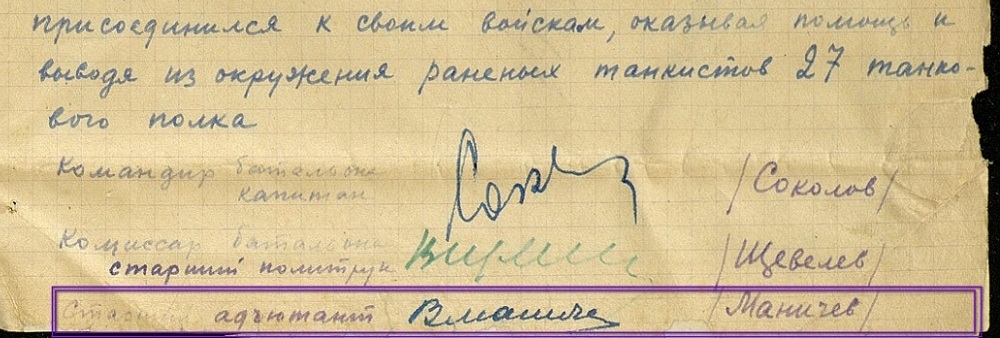 присоединился к своим войскам, оказывая помощь и
выводя из окружения раненых танкистов 27 танко-
вого полка
Командир батальона
капитан /Соколов/
Комиссар батальона
старший политрук /Щевелев/
Старший адъютант /Маничев/